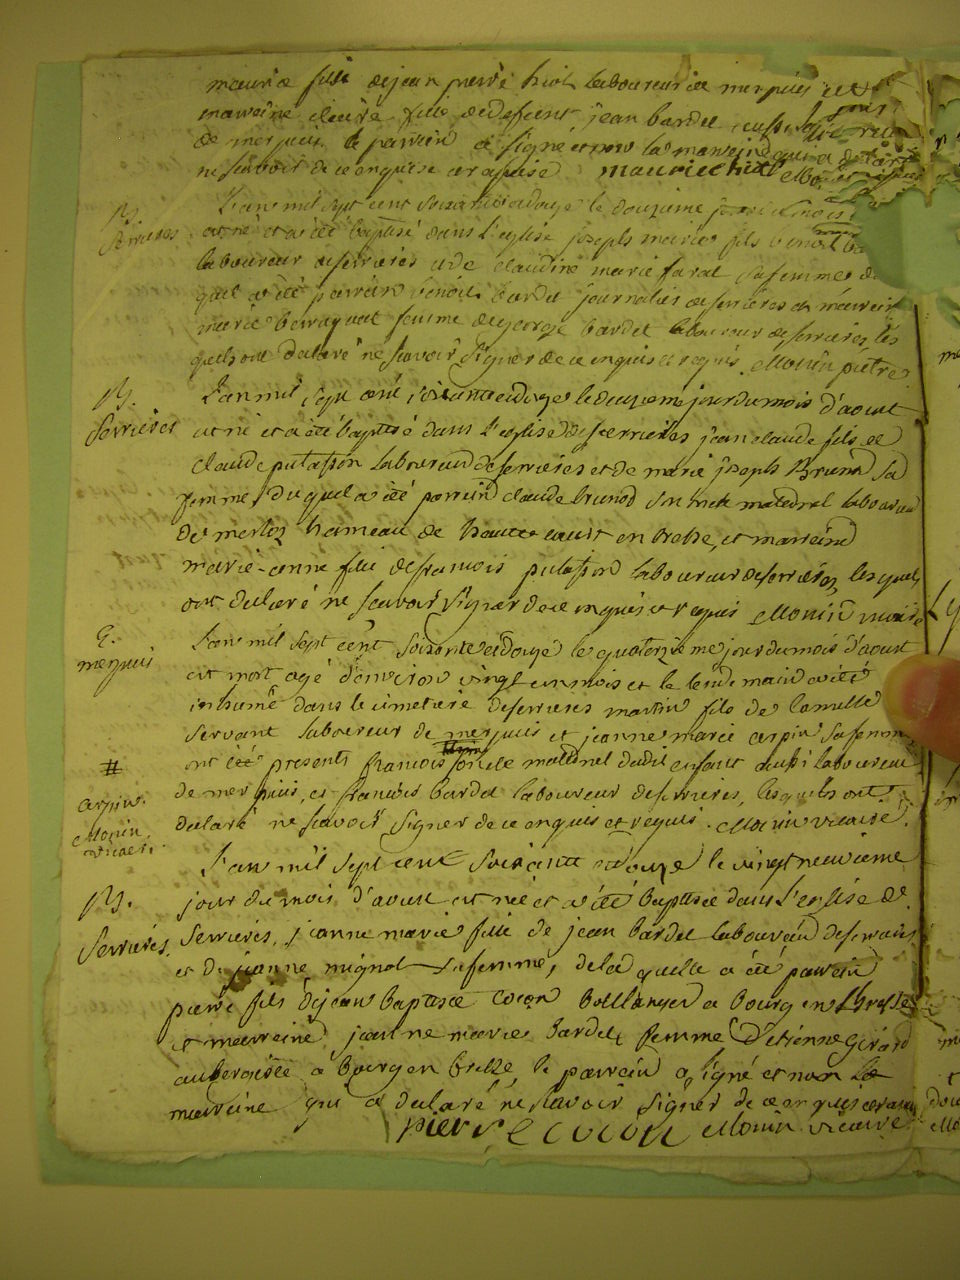 maurice fils de jean pierre huot laboureur de merpuis et
marreine claire fille de defunt jean bardet aussi
de merpuis le parrein a signé et non la marreine qui a declaré
ne scavoir de ce enquise et requise maurice huot Monin
B.
Serrieres
L'an mil sept cent soixante et douze le douzieme
est né et a été baptisé dans l'eglise joseph marie fils benoit
laboureur de serrieres et de claudine marie farat sa femme
quel a été parrein benoit bardet journalier de serrieres et marreine
marie femme de george bardet laboureur de serrieres les
quels ont declaré ne scavoir signer de ce enquis et requis. Monin
B.
Serrieres
L'an mil sept cent soixante et douze le jour du mois d'aout
est né et a été baptisé dans l'eglise de serrieres jean claude fils de
claude putasson laboureur de serrieres et de marie joseph Brunod sa
femme, du quel a été parrein claude brunod maternel laboureur
de merloz hameau de en bresse, et marreine
marie-anne fille de francois putassod laboureur de serrieres, lesquels
ont declaré ne scavoir signer de ce enquis et requis Monin vicaire
E.
merpuis
L'an mil sept cent soixante et douze le quatorzieme jour du mois d'aoust
est mort agé d'environ vingt un mois et le lendemain a été
inhumé dans le cimetiere de serrieres martin fils de
servant laboureur de merpuis et jeanne marie arpin sa femme
#
arpin.
Monin
vicaire.
ont été presents francois oncle maternel dudit enfant aussi laboureur
de merpuis, et francois bardet laboureur de serrieres, lesquels ont
declaré ne scavoir signer de ce enquis et requis. Monin vicaire.
B.
Serrieres.
L'an mil sept cent soixante et douze le vingt neuvieme
jour du mois d'aout est née et a été baptisée dans l'eglise de
Serrieres, jeanne marie fille de jean bardet laboureur de serrieres
et de jeanne mignot sa femme, de la quelle a été parrein
pierre fils de jean baptiste cocon boullanger a bourg en bresse
et marreine jeanne marie bardet femme d'etienne Girard
aubergiste a bourg en bresse le parrein a signé et non la
marreine qui a declaré ne scavoir signer de ce enquise
pierre cocon Monin vicaire